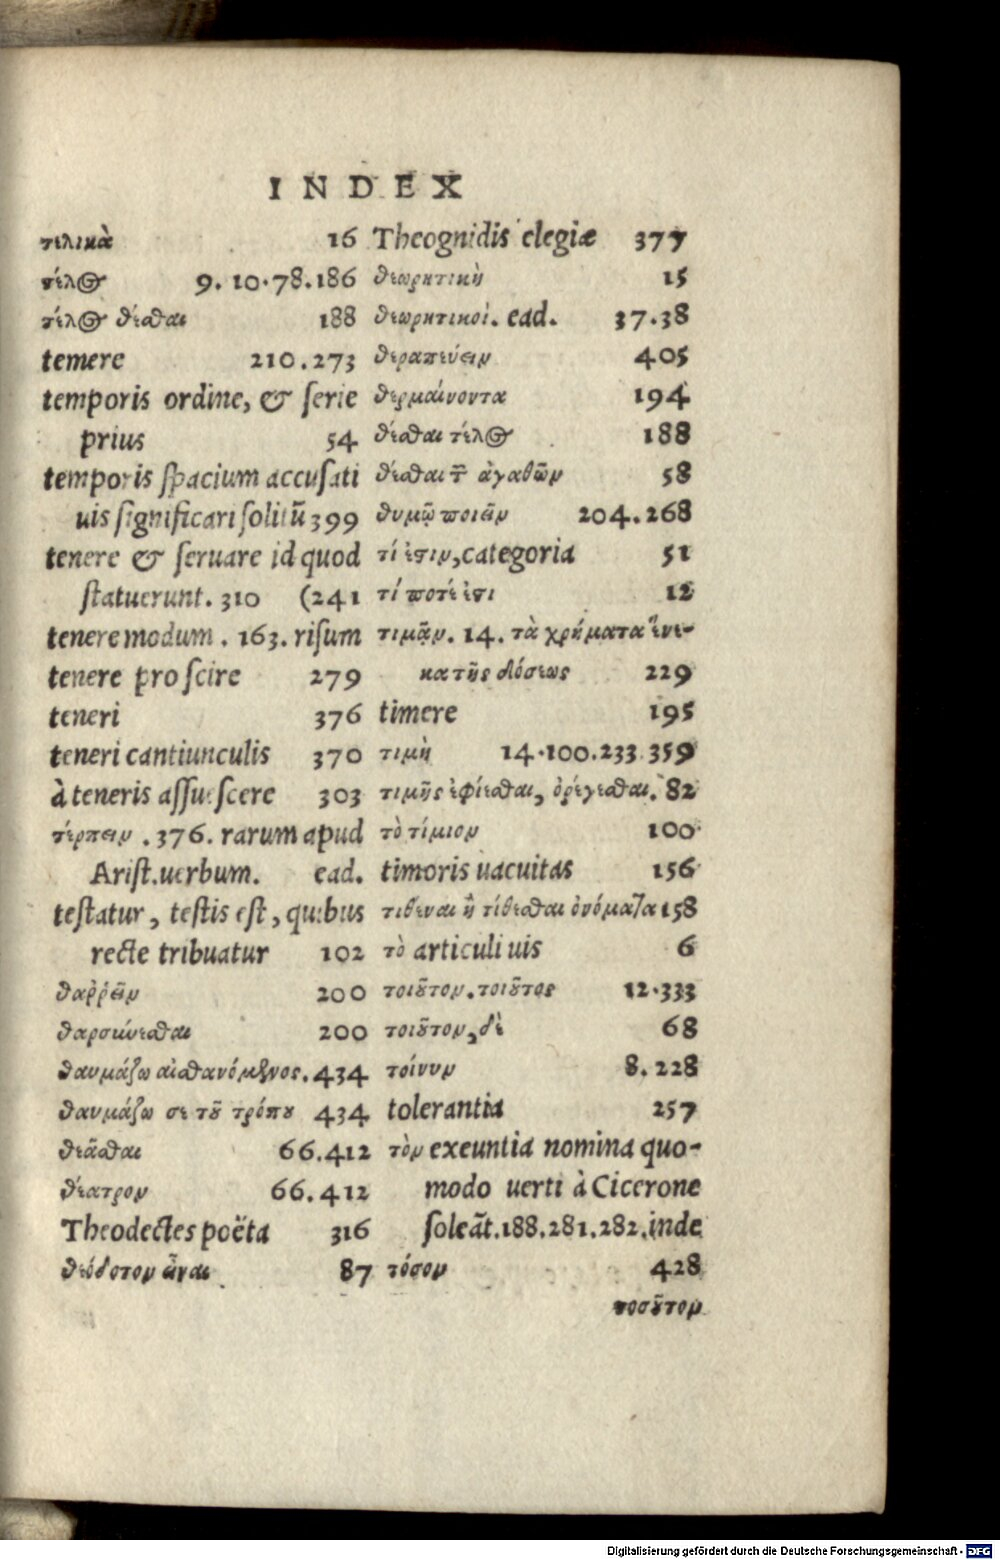 INDEX
τελικὰ 16
τέλος 9. 10.78.186
τέλος θέσθαι 188
temere 210.273
temporis ordine, & ſerie
prius 54
temporis ſpacium accuſati
uis ſignificari ſolitũ 399
tenere & ſeruare id quod
ſtatuerunt. 310 (241
tenere modum . 163. riſum
tenere pro ſcire 279
teneri 376
teneri cantiunculis 370
à teneris aſſueſcere 303
τέρπειν . 376. rarum apud
Ariſt. uerbum. ead.
teſtatur, teſtis eſt, quibus
recte tribuatur 102
θαῤῥεῖν 200
θαρσύνεσθαι 200
θαυμάζω αἰσθανόμενος. 434
θαυμάζω σε τοῦ τρόπου 434
θεᾶσθαι 66.412
θέατρον 66.412
Theodectes poëta 316
θεόσδοτον εἶναι 87
Theognidis elegiæ 377
θεωρητικὴ 15
θεωρητικοί. ead. 37.38
θεραπεύειν 405
θερμαίνοντα 194
θέσθαι τέλος 188
θέσθαι τῶν ἀγαθῶν 58
θυμῷ ποιεῖν 204.268
τί ἐστιν, categoria 51
τί ποτέ ἐστι 12
τιμᾷν. 14. τὰ χρήματα ἕνε-
κα τῆς δόσεως 229
timere 195
τιμὴ 14.100.233.359
τιμῆς ἐφίεσθαι, ὀρέγεσθαι. 82
τὸ τίμιον 100
timoris uacuitas 156
τιθέναι ἢ τίθεσθαι ὀνόματα 158
τὸ articuli uis 6
τοιοῦτον. τοιοῦτος 12.333
τοιοῦτον, δὲ 68
τοίνυν 8. 228
tolerantia 257
τὸν exeuntia nomina quo-
modo uerti à Cicerone
ſoleãt. 188.281.282. inde
τόσον 428
τοσοῦτον
Digitalisierung gefördert durch die Deutsche Forschungsgemeinschaft - DFG